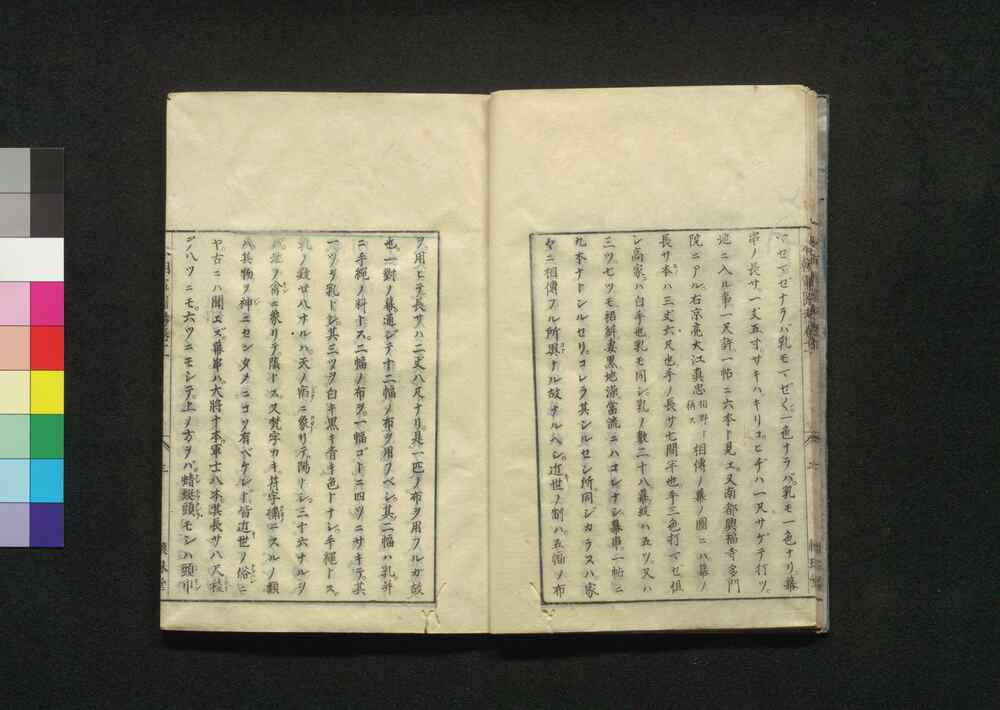 マゼマゼナラバ乳モマゼく一色ナラバ乳モ一色ナリ幕
串ノ長サ一丈五寸サキハキリコヒヂハ一尺サゲテ打ツ
地ニ入ル事一尺許一帖ニ六本ト見エ又南都興福寺多門
院ニアル右京亮大江眞忠 相傳ノ幕ノ圖ニハ幕ノ
長サ本ハ三丈六尺也手ノ長サ七間半也手三色打マゼ但
シ高家ハ白手也乳モ同シ乳ノ數二十八幕紋ハ五ツ又ハ
三ツ七ツモ 黒地 當流ニハコレナシ幕串一帖ニ
九本ナドシルセリコレラ其シルセシ所同シカラスハ家
々ニ相傳フル所異ナル故ナルベシ近世ノ制ハ五幅ノ布
ヲ用ヒテ長サハ二丈八尺ナリ是一匹ノ布ヲ用フルガ故
也一對ノ幕通シテ十二幅ノ布ヲ用フベシ其二幅ハ乳并
ニ手繩ノ料トス二幅ノ布ヲ一幅ゴトニ四ツニサキテ其
一ツヲ乳トシ其三ツヲ白キ黒キ青キ色トナシ手繩トス
乳ノ數廿八ナルハ天ノ ニ象リテ陽トシ三十六ナルヲ
地ノ禽ニ象リテ陰トス又梵字カキ符字 ニスルノ類
ハ其物ヲ神ニセンタメニコソ有ベケレド皆近世ノ俗ニ
ヤ古ニハ聞エズ幕串ハ大將十本軍士八本其長サハ八尺
シハツニモ六ツニモシテ上ノ方ヲバ蜻蜓頭モシハ頭巾